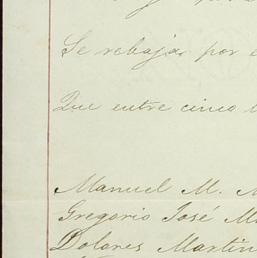 y
Se rebaja por
Que entre cinco
Manuel M.
Gregorio José
Dolores Martin